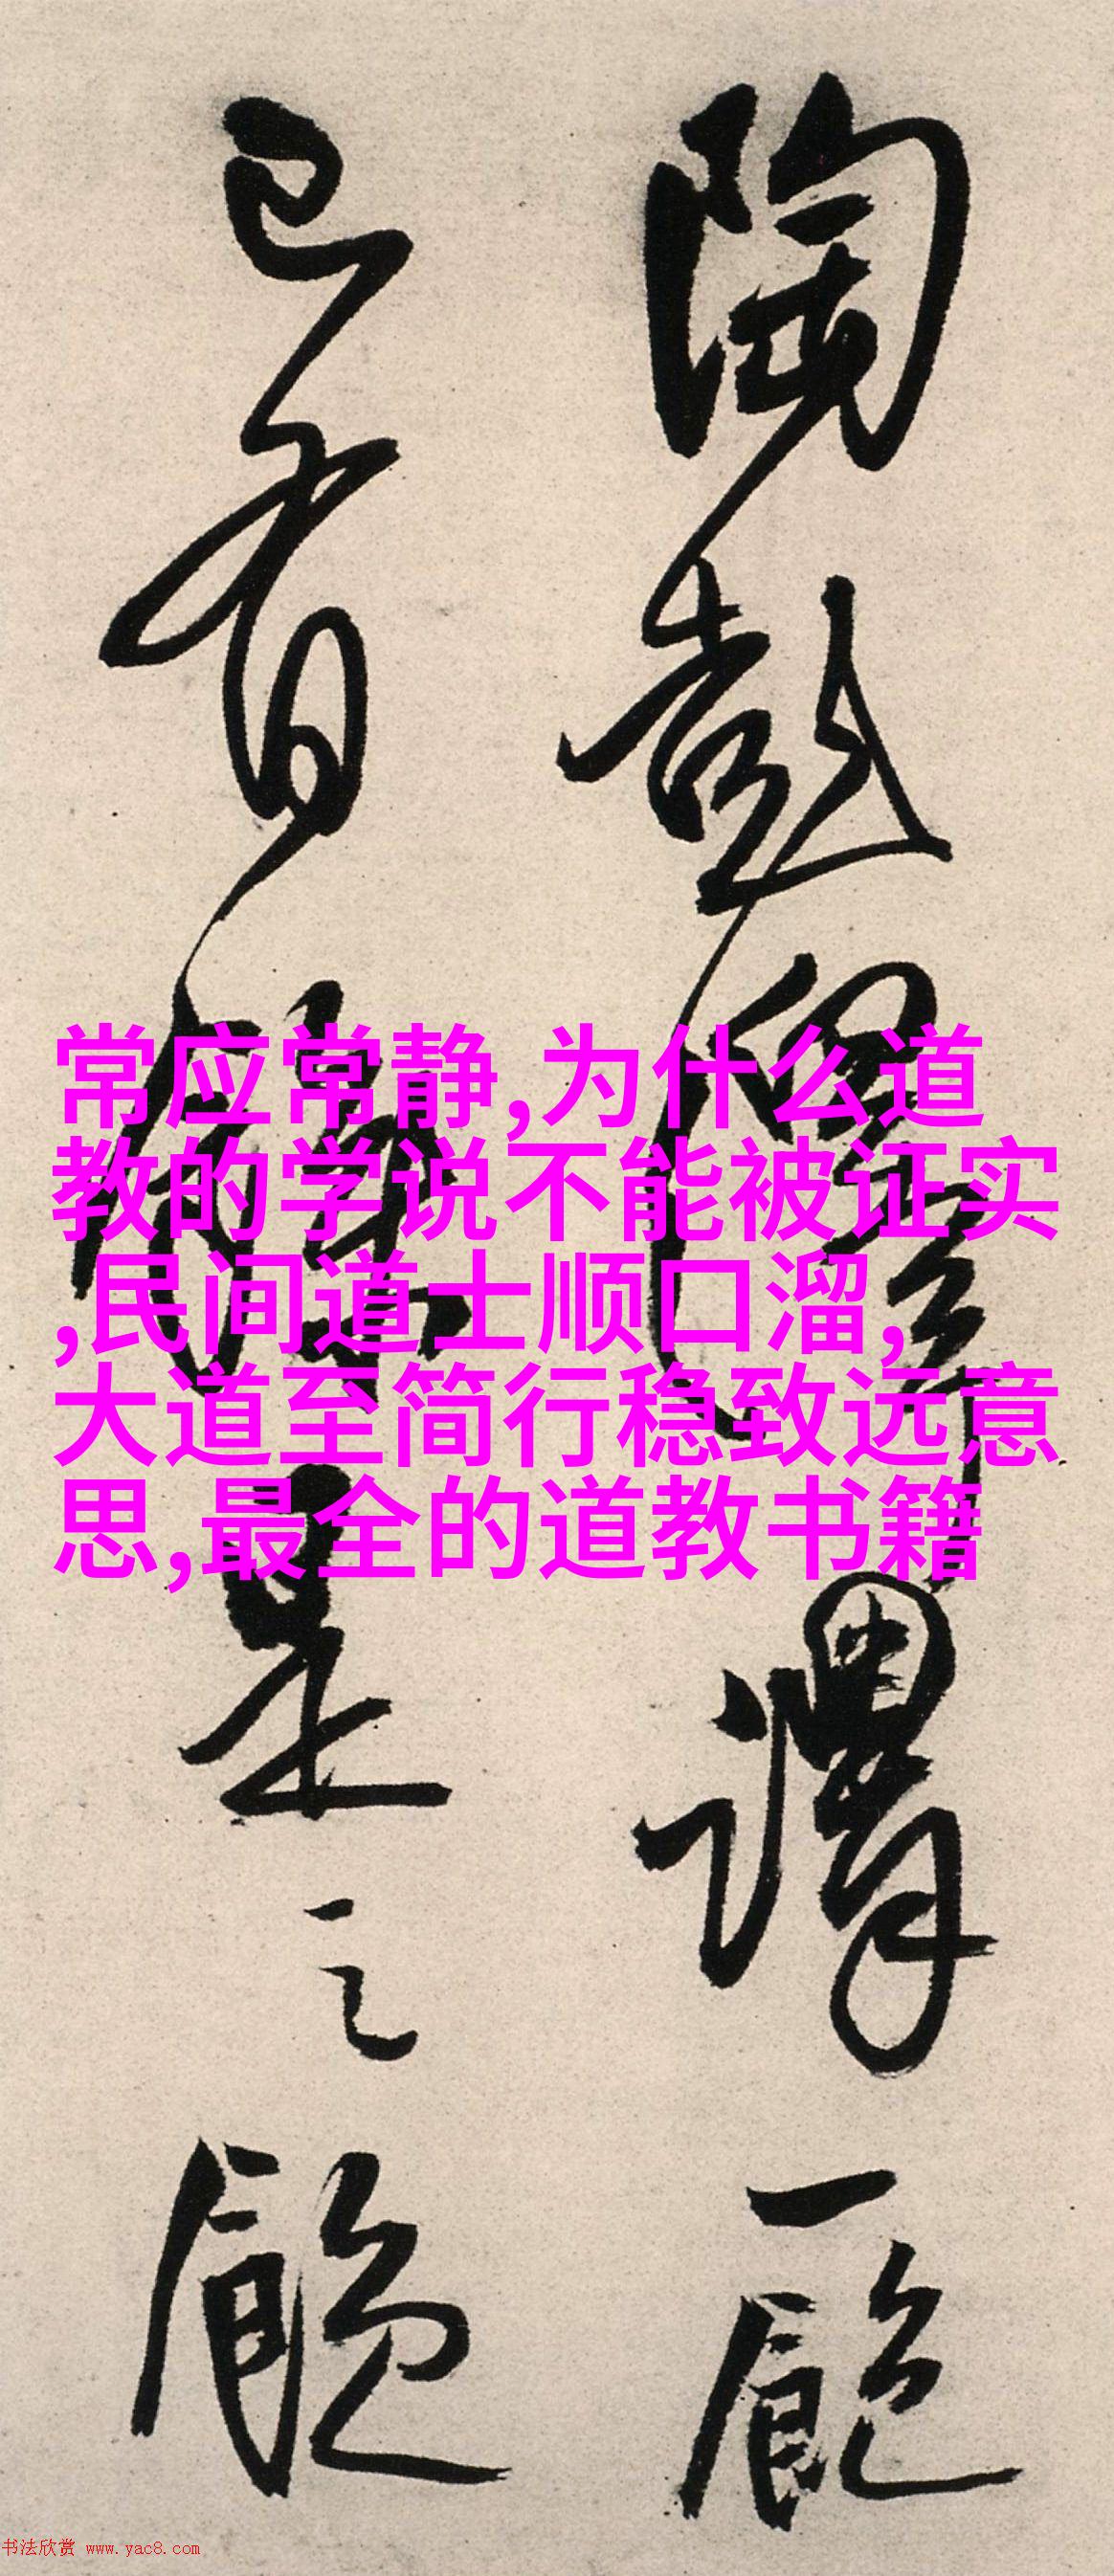 陶彭澤謂一飽
已有餘是之
常应常静,为什么道
教的学说不能被证实
,民间道士顺口溜,
大道至简行稳致远意
思,最全的道教书籍
书法欣赏 www.yac8.com